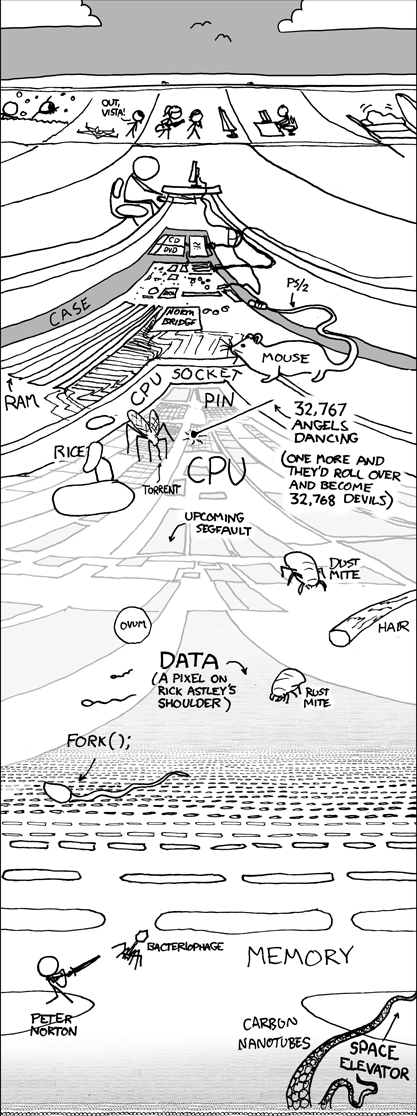 OUT,
VISTA!
CD
DVD
PS/2
CASE
NORTH
BRIDGE
MOUSE
RAM
CPU SOCKET
PIN
32,767
ANGELS
DANCING
(ONE MORE AND
THEY'D ROLL OVER
AND BECOME
32,768 DEVILS)
RICE
CPU
TORRENT
UPCOMING
SEGFAULT
DUST
MITE
OVUM
HAIR
DATA
(A PIXEL ON
RICK ASTLEY'S
SHOULDER)
RUST
MITE
FORK();
BACTERIOPHAGE
MEMORY
PETER
NORTON
CARBON
NANOTUBES
SPACE
ELEVATOR